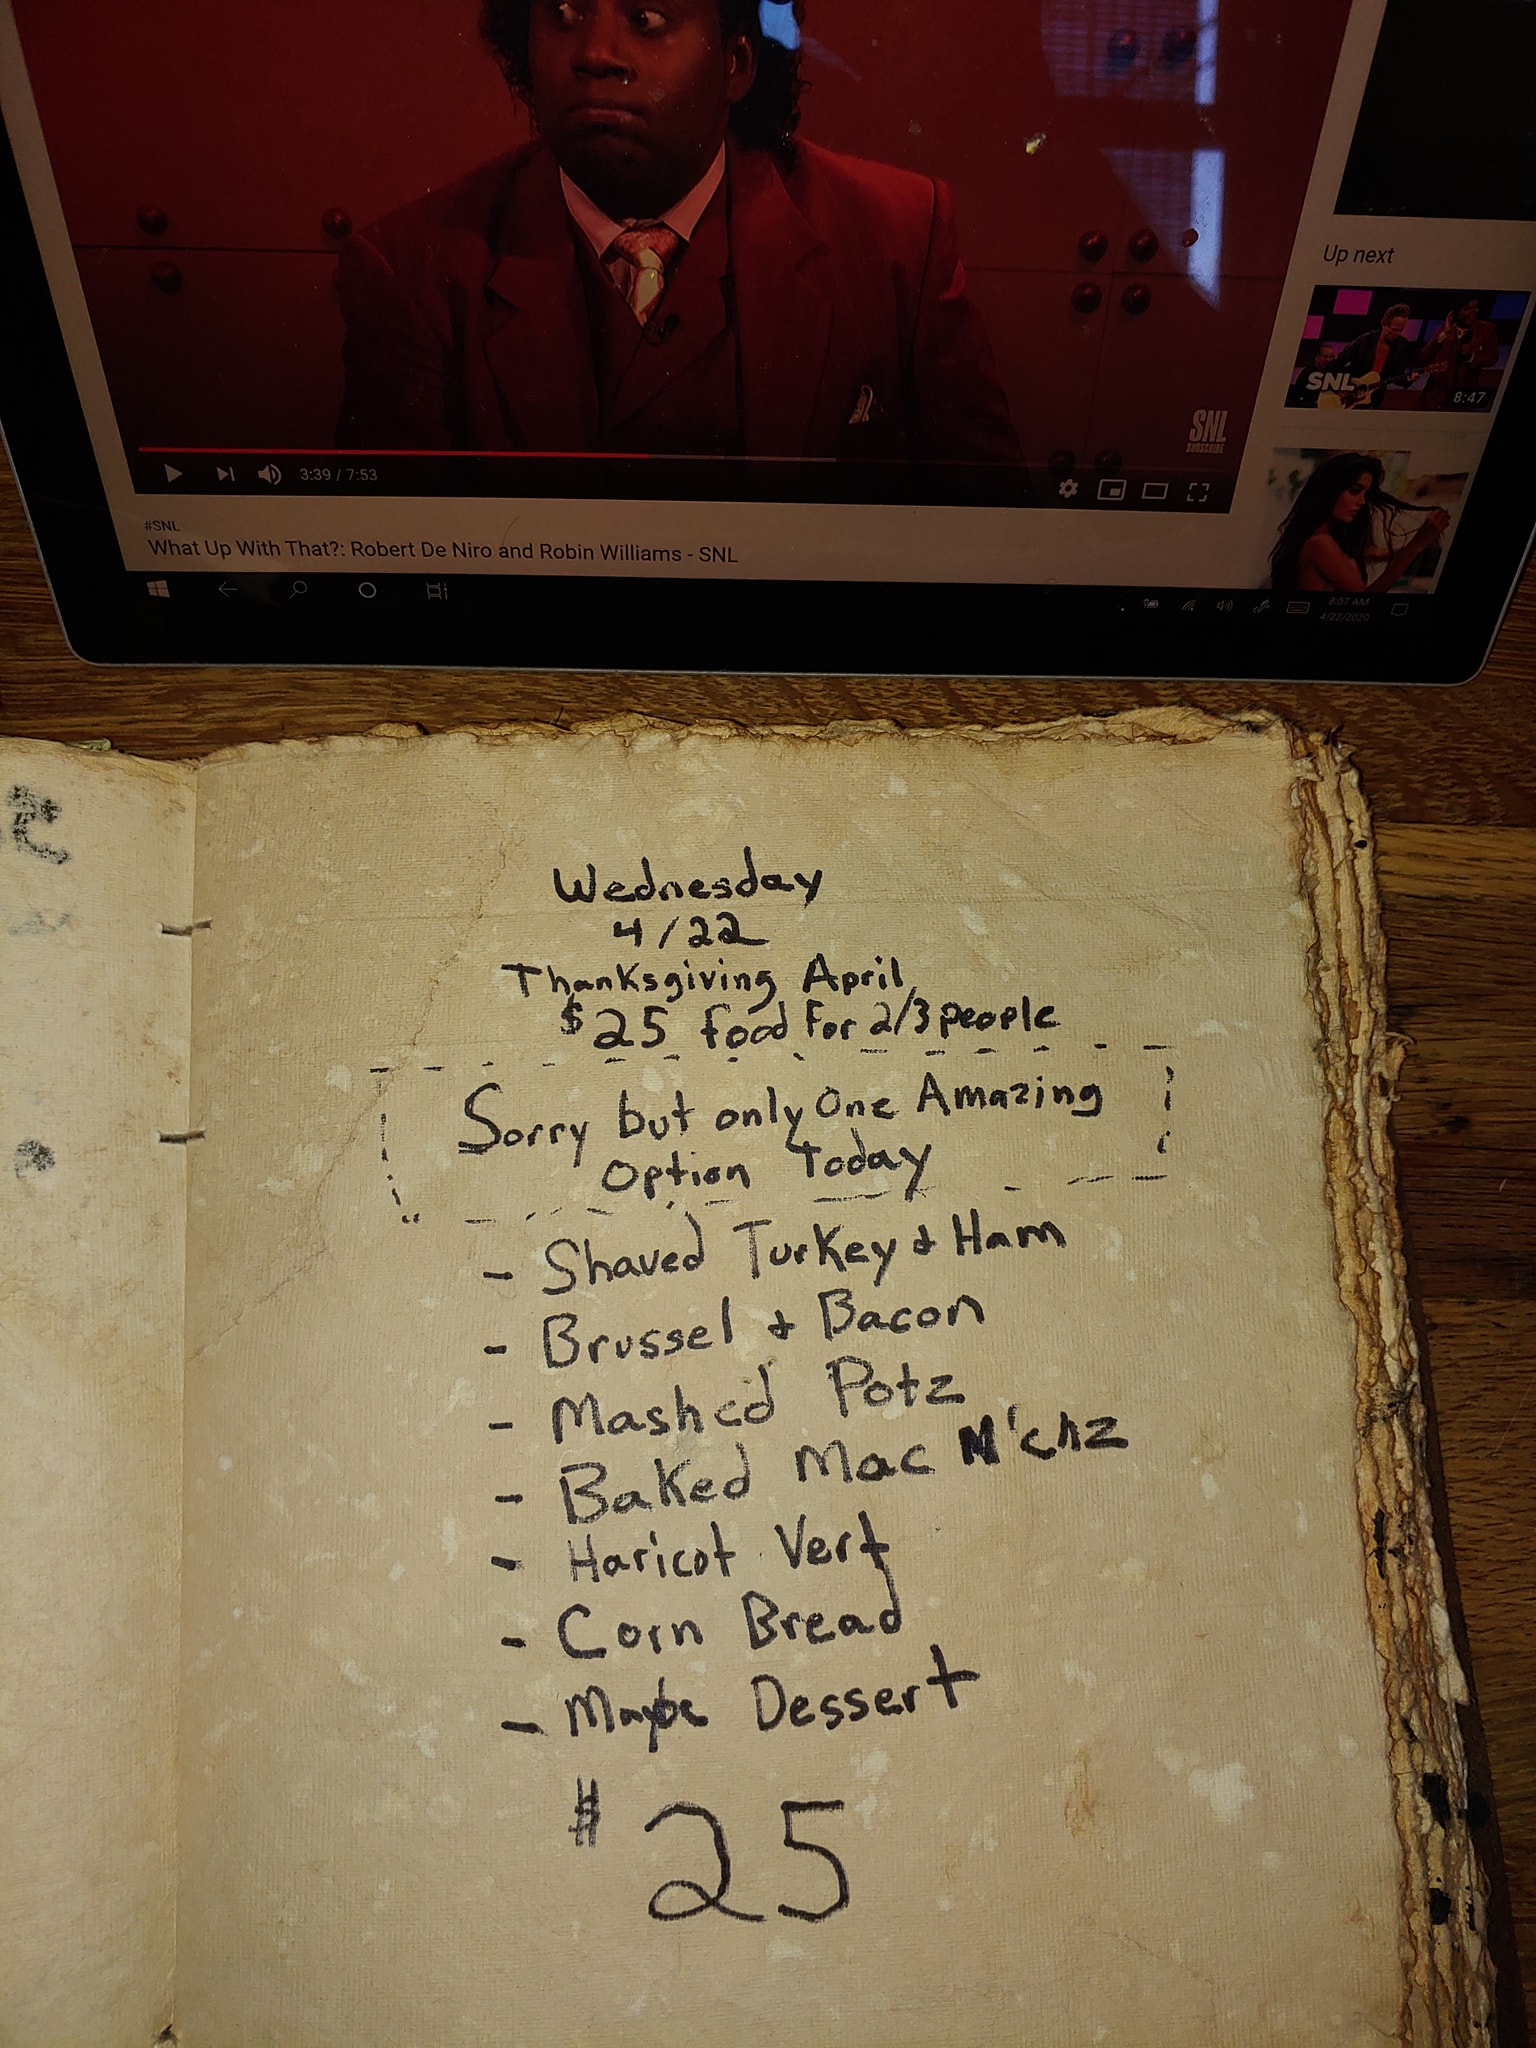 Up next
SNL
8:47
SNL
SUBSCRIBE
3:39 / 7:53
#SNL
What Up With That?: Robert De Niro and Robin Williams - SNL
8:07 AM
4/22/2020
Wednesday
4/22
Thanksgiving April
$25 food for 2/3 people
Sorry but only One Amazing
Option Today
- Shaved Turkey & Ham
- Brussel & Bacon
- Mashed Potz
- Baked Mac N'chz
- Haricot Vert
- Corn Bread
- Maybe Dessert
$25